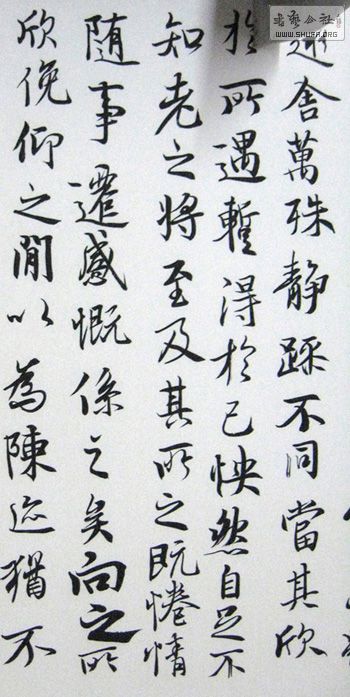 趣舍萬殊静躁不同當其欣
於所遇蹔得於己怏然自足不
知老之將至及其所之既惓情
随事遷感慨係之矣向之所
欣俛仰之閒以為陳迹猶不
書藝公社
WWW.SHUFA.ORG